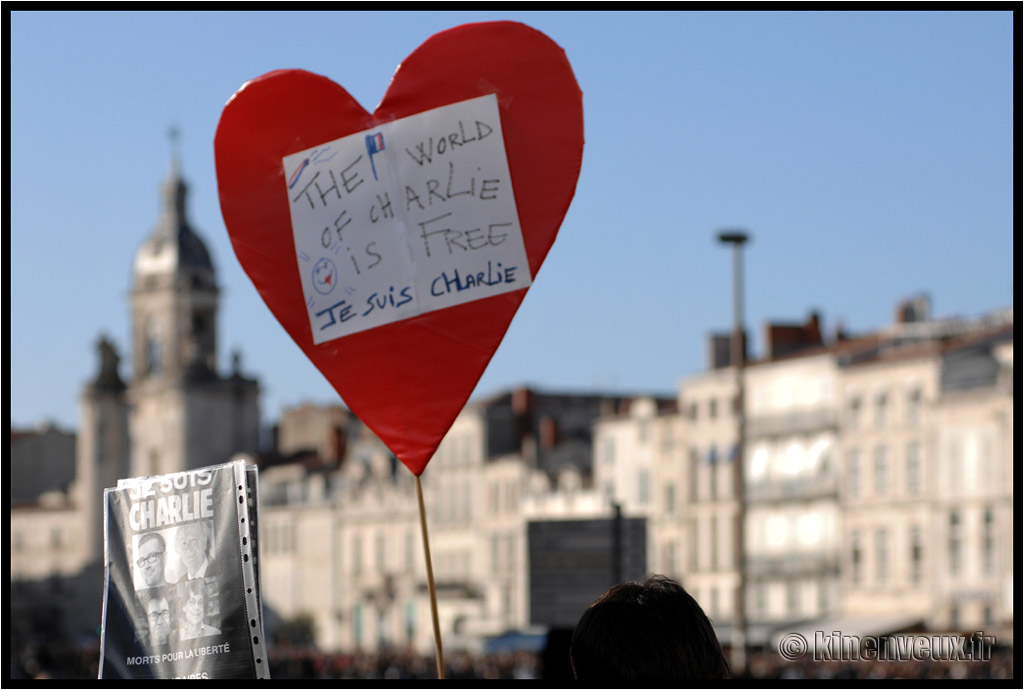 THE WORLD
OF CHARLIE
iS FREE
JE SUiS CHARLiE
JE SUIS
CHARLIE
MORTS POUR LA LIBERTÉ
© kinenveux.fr